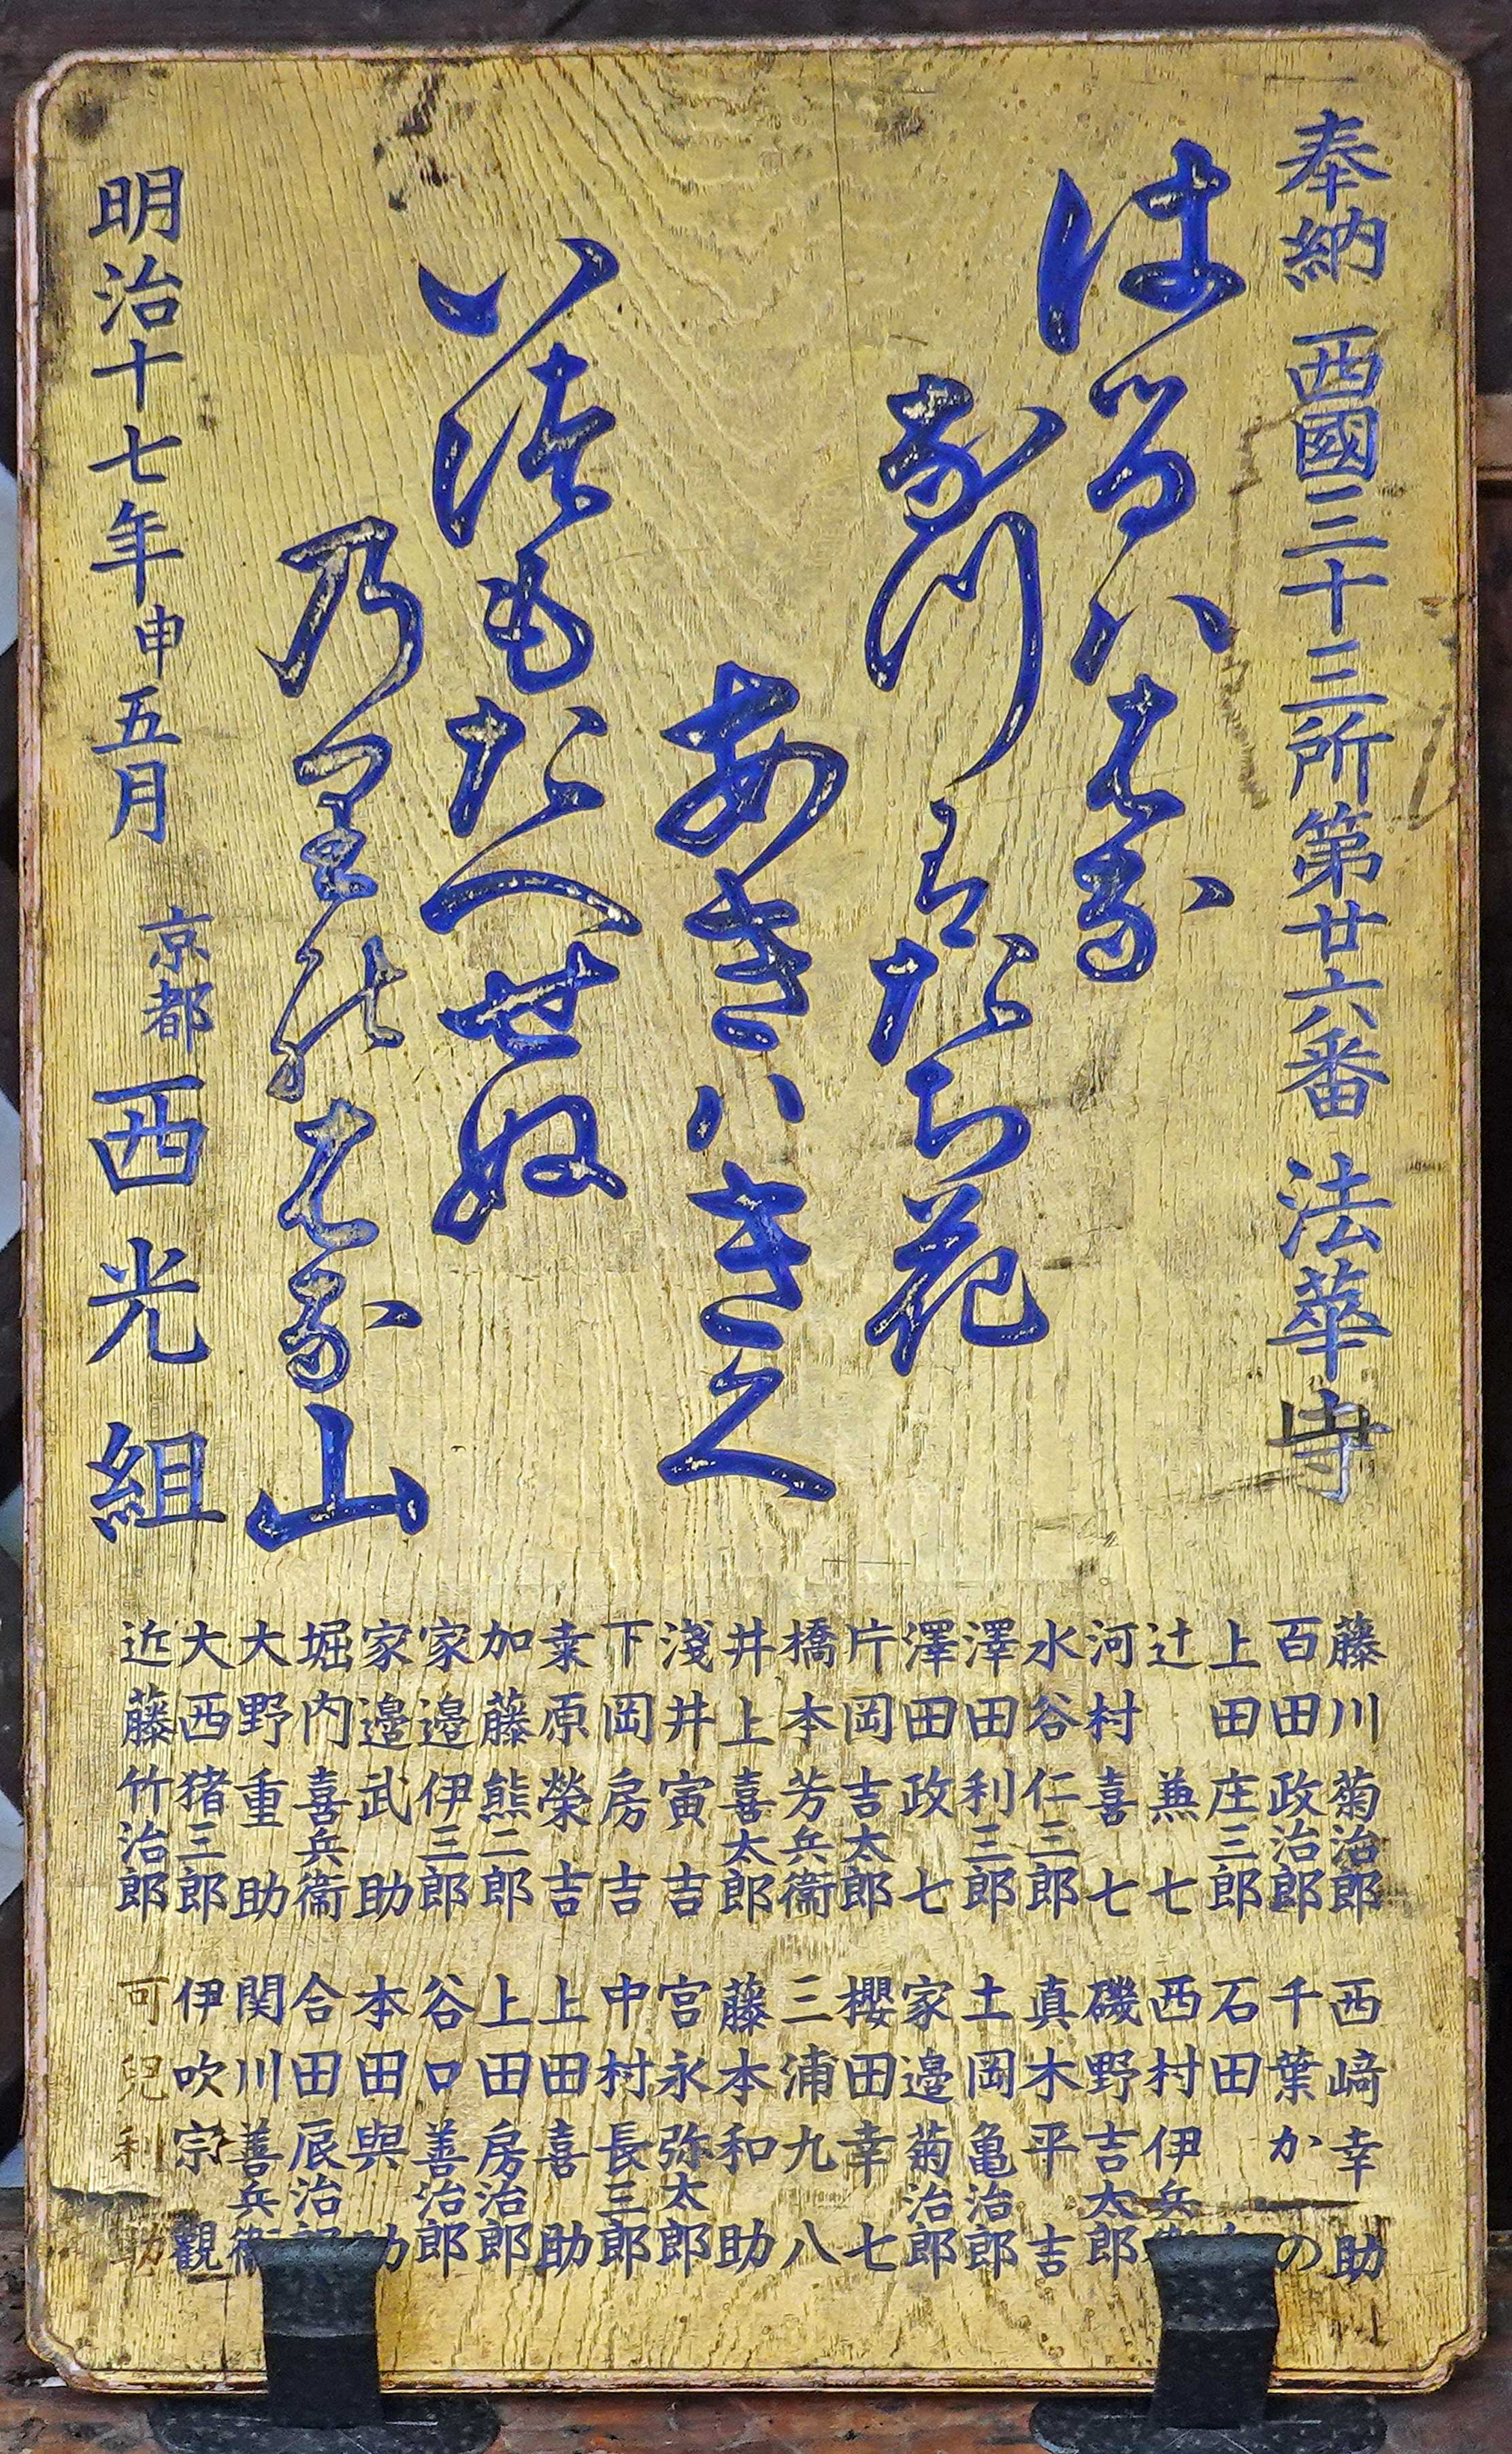 奉納 西國三十三所第廿六番 法華寺
はるハはな
なつはたち花
あきハきく
いつもたへせぬ
乃りのはな山
明治十七年申五月 京都 西光組
藤川菊治郎
百田政治郎
上田庄三郎
辻兼七
河村喜七
水谷仁三郎
澤田利三郎
澤田政七
片岡吉太郎
橋本芳兵衞
井上喜太郎
淺井寅吉
下岡房吉
桒原榮吉
加藤熊二郎
家邉伊三郎
家邉武助
堀内喜兵衞
大野重助
大西猪三郎
近藤竹治郎
西﨑幸助
千葉かの
石田
西村伊兵衞
磯野吉太郎
真木平吉
土岡亀治郎
家邉菊治郎
櫻田幸七
三浦九八
藤本和助
宮永弥太郎
中村長三郎
上田喜助
上田房治郎
谷口善治郎
本田與助
合田辰治郎
関川善兵衞
伊吹宗觀
可兒利助